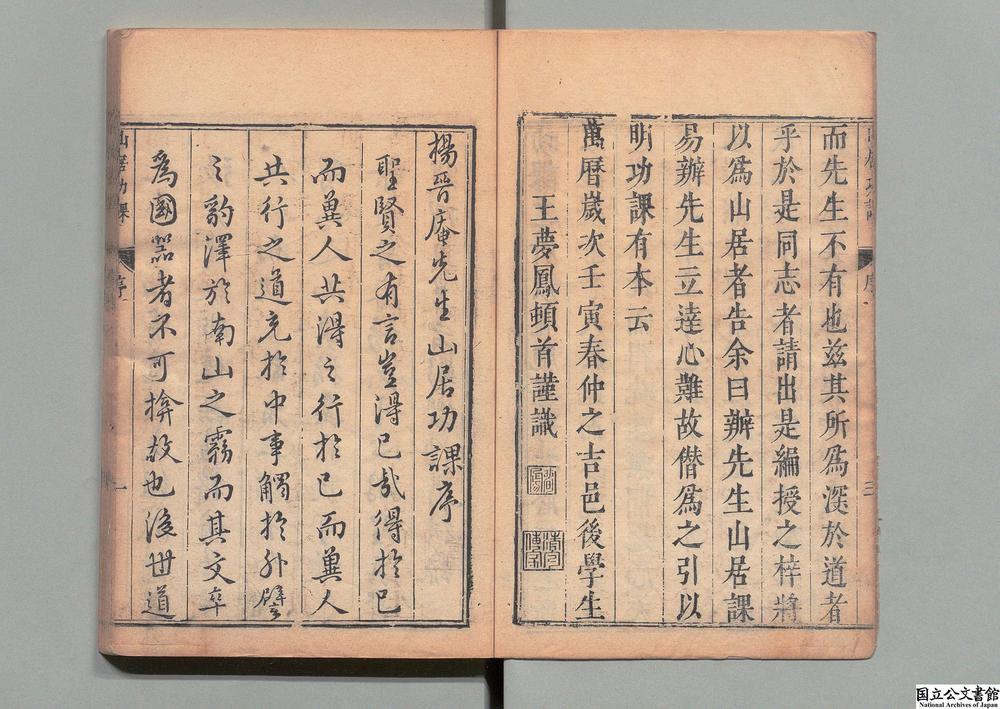 而先生不有也茲其所為深於道者
乎於是同志者請出是編授之梓將
以為山居者告余曰辦先生山居課
易辦先生立達心難故僭為之引以
明功課有本云
萬曆歲次壬寅春仲之吉邑後學生
王夢鳳頓首謹識
楊晉庵先生山居功課序
聖賢之有言豈得已哉得於己
而冀人共得之行於己而冀人
共行之道充於中事觸於外譬
之豹澤於南山之霧而其文卒
為國器者不可揜故也後世道
山居功課
序
一
三
国立公文書館
National Archives of Japan